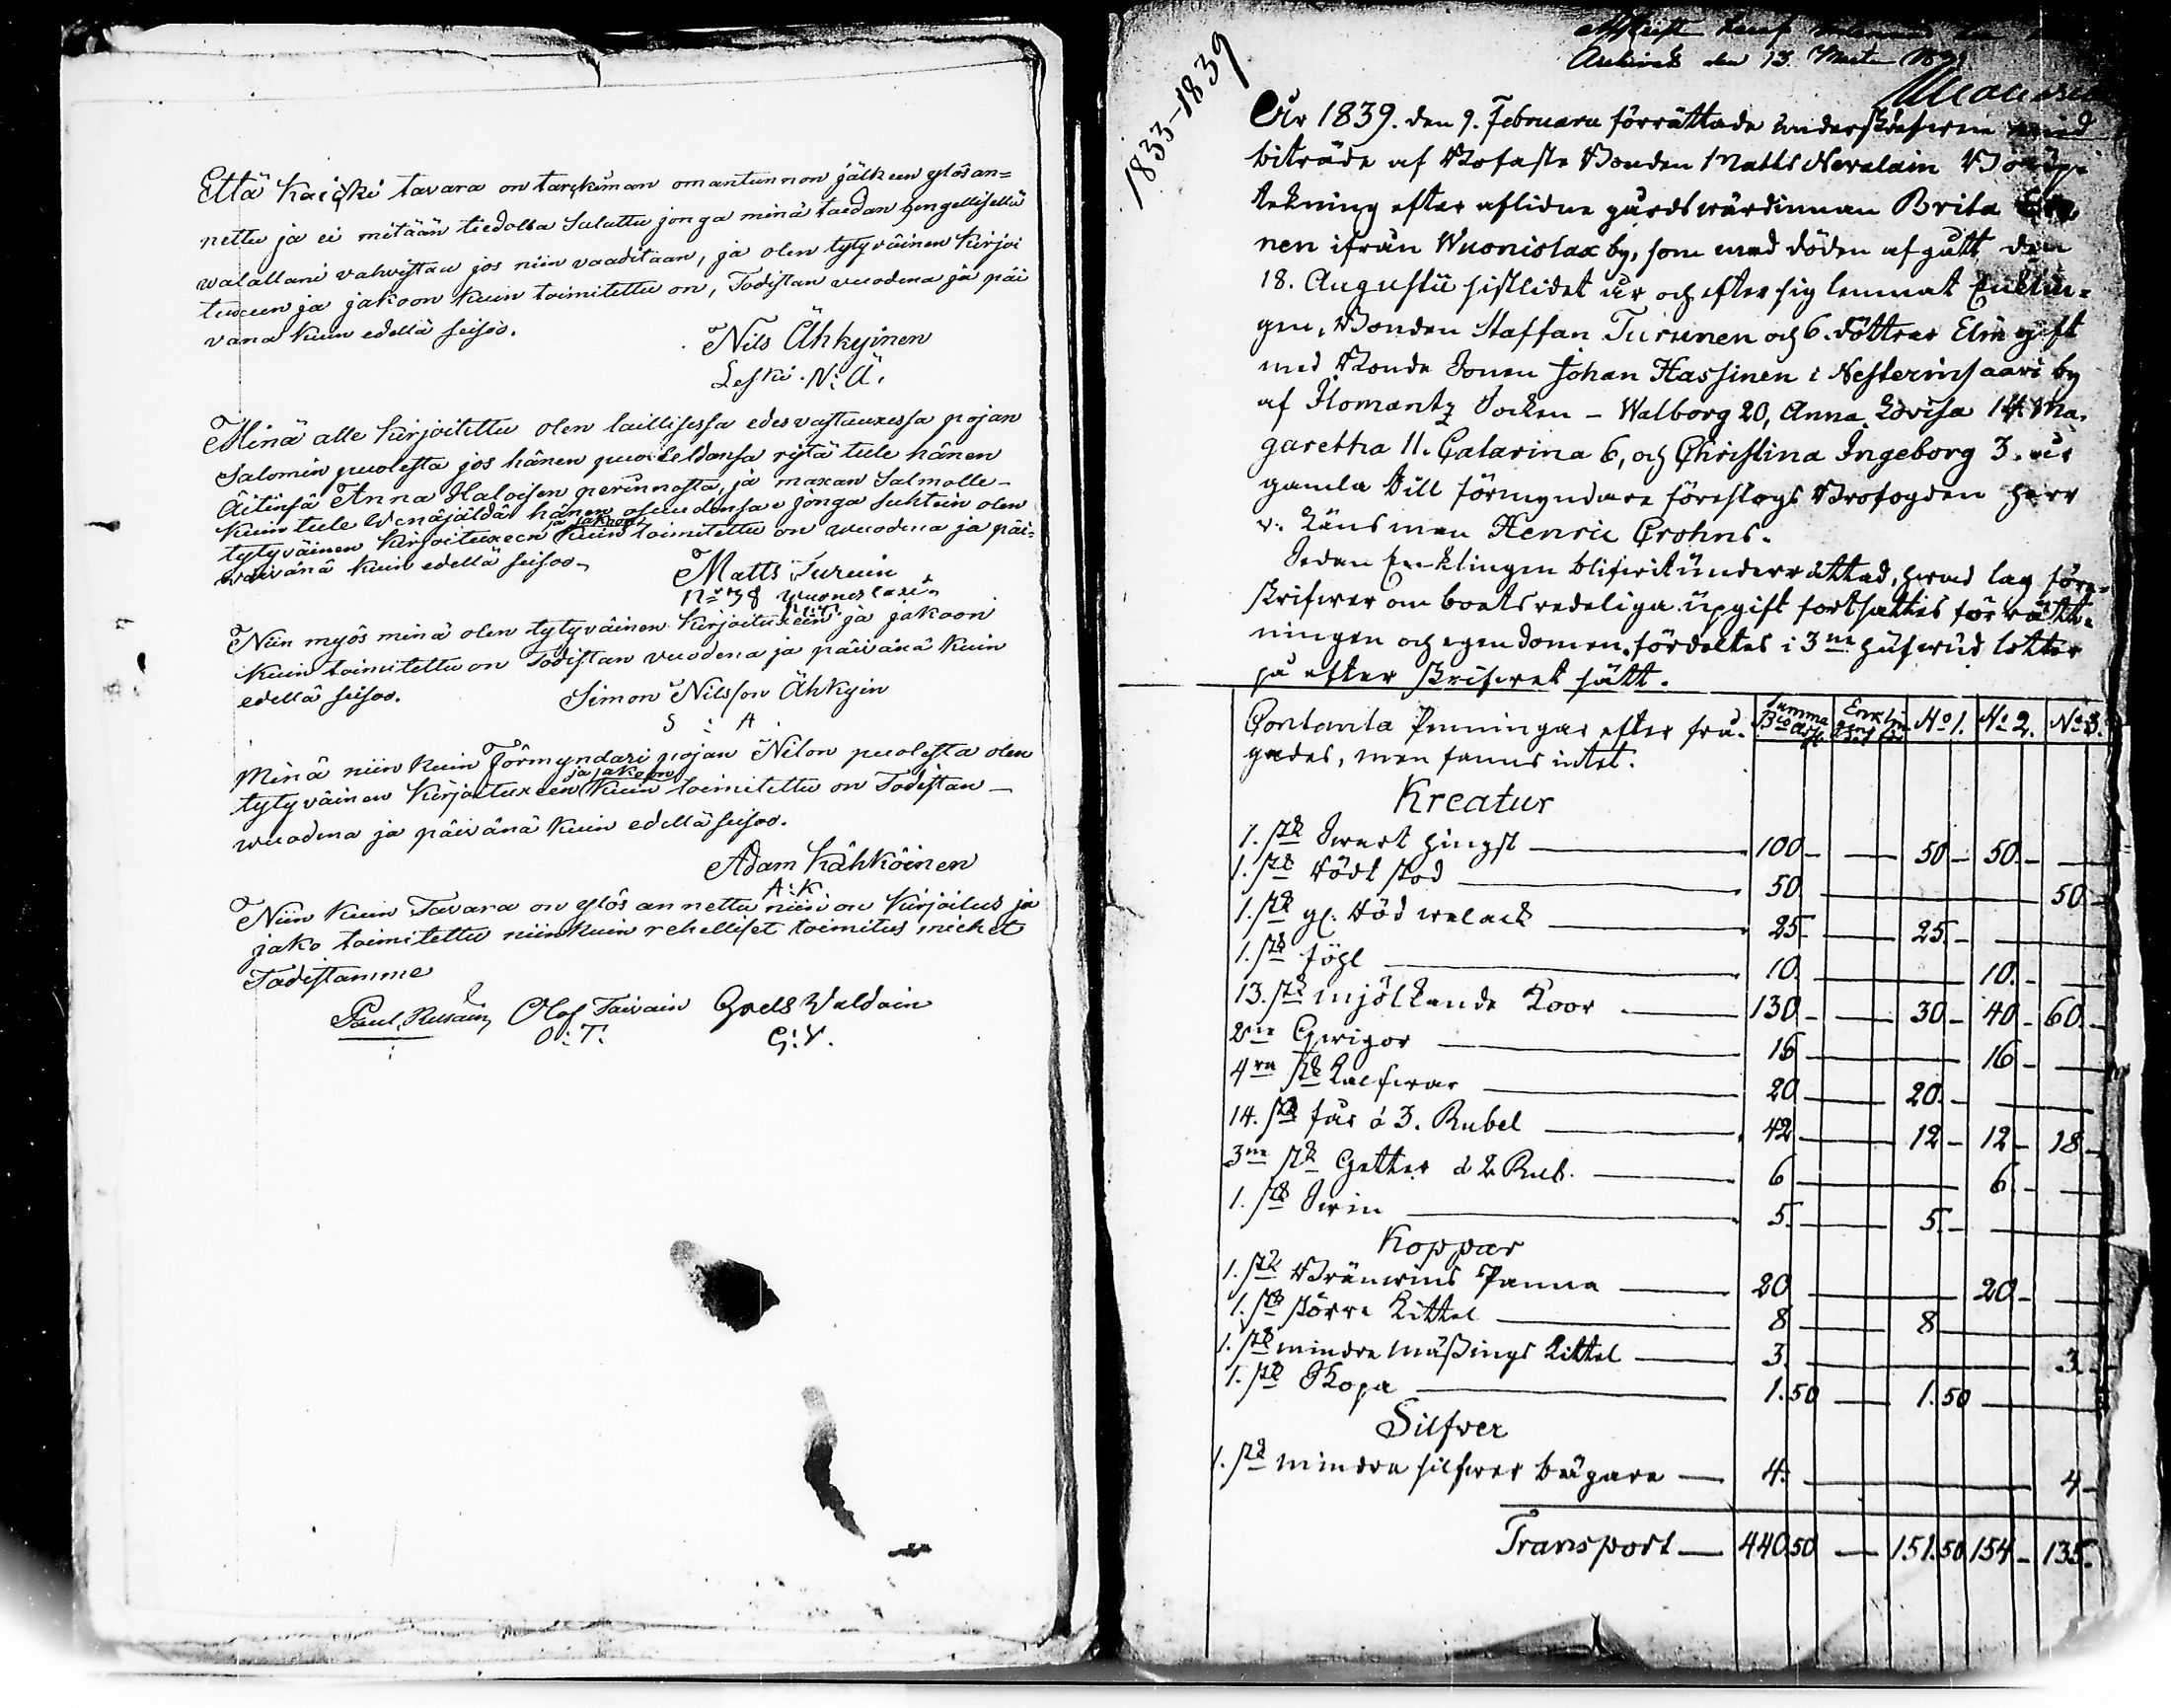 Että Kaicki tavara on tarckiman omantunnon jälkeen ylösan=
nettu ja ei mitään tiedolla Suluttu jonga minä taedan hengellisellä
walallani vahvistaa jos niin vaaditaan, ja olen tytyväinen Kirjoi
tuxeen ja jakoon kuin toimitettu on, Todistan vuodena ja päi
vänä kuin edellä seisoo.
Nils Ähkyinen
Leski. N: Ä.
Minä alle kirjoitettu olen laillisessa edesvastauxessa pojan
Salomin puolesta jos hänen puoleldansa ristä tule hänen
Äitinsä Anna Haloisen perinnosta, ja maxan Salmolle-
Kuin tule Wenäjäldä hänen osuudensa jonga suhtein olen
ja jakoon
tytyväinen Kirjoituxeen kuin toimitettu on wuodena ja päi=
wänä kuin edellä seisoo-
Matts Turuin
No 38 Wuonislaxi
M:T.
Niin myös minä olen tytyväinen Kirjoituxeen ja jakoon
kuin toimitettu on Todistan vuodena ja päivänä kuin
edellä seisoo.
Simon Nilsson Ähkyin
S : Ä
Minä niin kuin Förmyndari pojan Nilon puolesta olen
ja jakoon
tytyväinen Kirjoituxeen kuin toimitettu on Todistan-
wuodena ja päivänä kuin edellä seisoo.
Adam Kähköinen
A:K
Niin kuin Tavara on ylös annettu niin on Kirjoitus ja
jako toimitettu niinkuin rehelliset toimitus miehet
Todistamme
Paul Rusain, Olof Taivain Goels Waldain
O:T. G:V.
1833-1839
den 13. 
År 1839. den 9. Februarii förrättade underskrefwne med
biträde af Rofaste Bonden Matts Nevalain Boupp
tekning efter aflidne gårdswärdinnan Brita
nen ifrån Wuonislax by, som med döden afgått den
18. Augustii sistlidet år och efter sig lemnat Enklin-
gen, Bonden Staffan Turunen och 6. döttrar Elin gift
med Bonde Sonen Johan Hassinen i Nesterinsaari by
af Ilomantz Socken - Walborg 20, Anna Lovisa 14, Ma-
garetha 11. Catarina 6, och Christina Ingeborg 3. år
gamla till förmyndare föreslogs Krofogden Herr
v. Länsman Henric Crohns.
Sedan Enklingen blifwit underrättad, hwad lag före-
skrifwer om boets redeliga upgift fortsattes förrätt-
ningen och egendomen fördeltes i 3ne hufwud lotter
på efter skrifwet sätt.
Contanta Penningar efter frå-
gades, men fanns intet.
Summa Bco Ass. Enklingens No 1. No 2. No 3.
Kreatur
1. st. Swart hingst — 100 — 50 — 50 —
1. st. Rödt stod — 50 — 50 —
1. st. gl. Röd walack — 25 — 25 —
1. st. föhl — 10 — 10. —
13. st. mjölkande Koor — 130 — 30 — 40 — 60 —
2ne Qwigor — 16 — 16 —
4ra st. Kalfwar — 20 — 20 —
14. st. får á 3. Rubel — 42 — 12 — 12 — 18 —
3ne st. Getter á 2 Rub. — 6 — 6 —
1. st. Swin — 5. — 5. —
Koppar
1. st. Bränwins Panna — 20 — 20 —
1. st. större Kittel — 8 — 8 —
1. st. mindre mässings Kittel — 3 — 3 —
1. st. Skopa — 1.50 — 1.50 —
Silfver
1. st. mindre silfwer bägare — 4. — 4 —
Transport — 440.50 — 151.50 154 — 135.